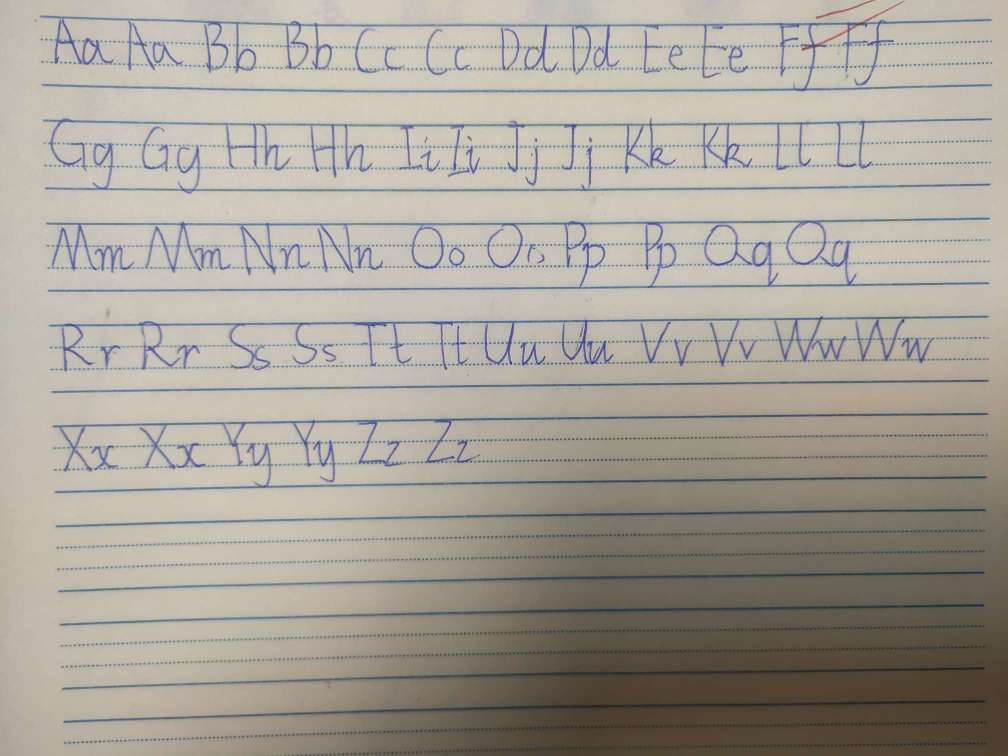 Aa Aa Bb Bb Cc Cc Dd Dd Ee Ee Ff Ff
Gg Gg Hh Hh Ii Ii Jj Jj Kk Kk Ll Ll
Mm Mm Nn Nn Oo Oo Pp Pp Qq Qq
Rr Rr Ss Ss Tt Tt Uu Uu Vv Vv Ww Ww
Xx Xx Yy Yy Zz Zz